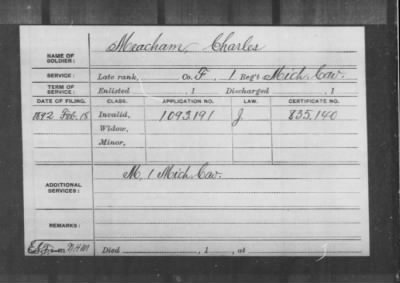 NAME OF SOLDIER: Meacham, Charles
SERVICE: Late rank, Co. F, 1 Reg't Mich. Cav.
TERM OF SERVICE: Enlisted , 1 Discharged , 1
DATE OF FILING. CLASS. APPLICATION NO. LAW. CERTIFICATE NO.
1892 Feb. 18 Invalid, 1093191 J. 835.140
Widow,
Minor,
ADDITIONAL SERVICES: M, 1 Mich. Cav.
REMARKS:
Died , 1 , at